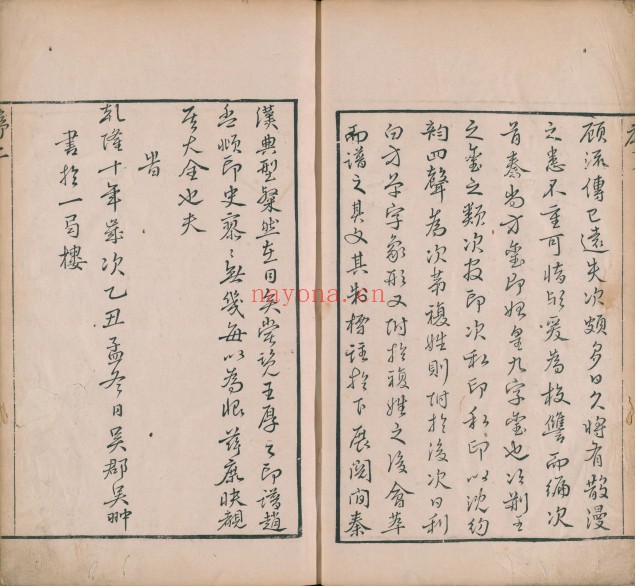 序
顧流傳已遠失次頗多日久將有散漫
之患不重可惜歟爰為校讐而編次
首秦尚方璽即始皇九字璽也次荆王
之璽之類次官印次私印私印以沈約
韵四聲為次第複姓則附於後次曰利
曰方單字象形又附於複姓之後會萃
而譜之其文其朱標註於下展閱間秦
漢典型粲然在目矣嘗覽王厚之印譜趙
孟頫印史寥寥無幾每以為恨茲庶快覩
其大全也夫
旹
乾隆十年歲次乙丑孟冬日吳郡吳
書於一局樓
序二
nayona.cn